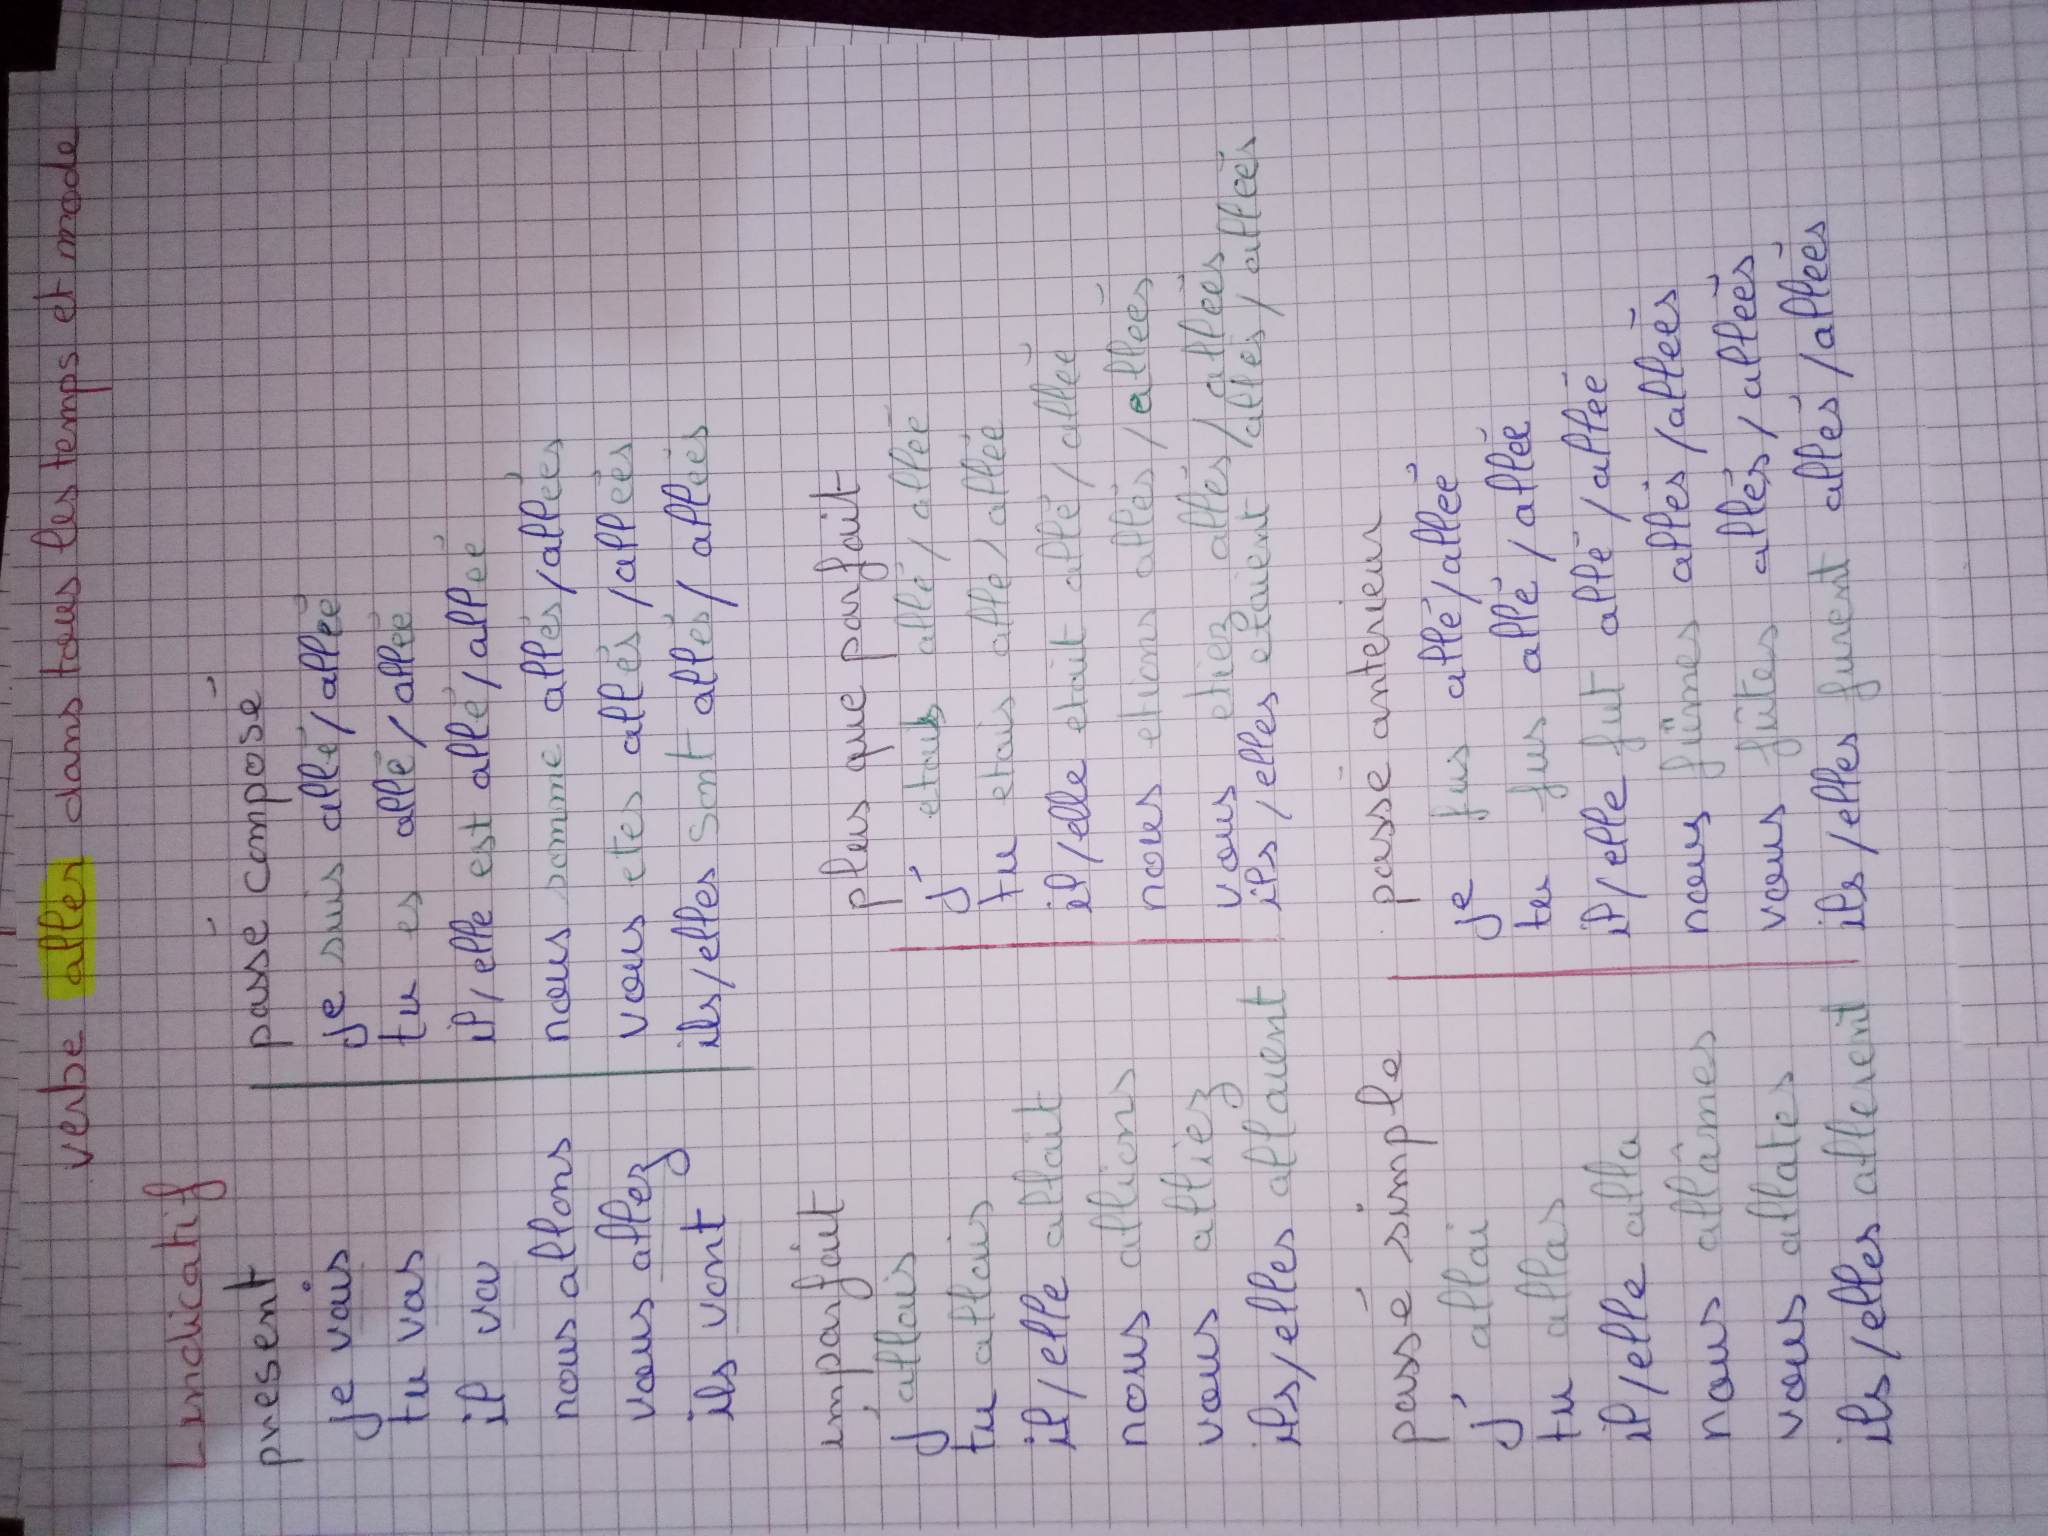 verbe aller dans tous les temps et mode
L'indicatif
présent
je vais
tu vas
il va
nous allons
vous allez
ils vont
passé composé
je suis allé/allée
tu es allé/allée
il/elle est allé/allée
nous somme allés/allées
vous etes allés/allées
ils/elles sont allés/allées
imparfait
j'allais
tu allais
il/elle allait
nous allions
vous alliez
ils/elles allaient
plus que parfait
j' etais allé/allée
tu etais allé/allée
il/elle etait allé/allée
nous etions allés/allées
vous etiez allés/allées
ils/elles etaient allés/allées
passé simple
j' allai
tu allas
il/elle alla
nous allâmes
vous allates
ils/elles allerent
passé anterieur
je fus allé/allée
tu fus allé/allée
il/elle fut allé/allée
nous fûmes allés/allées
vous fûtes allés/allées
ils/elles furent allés/allées